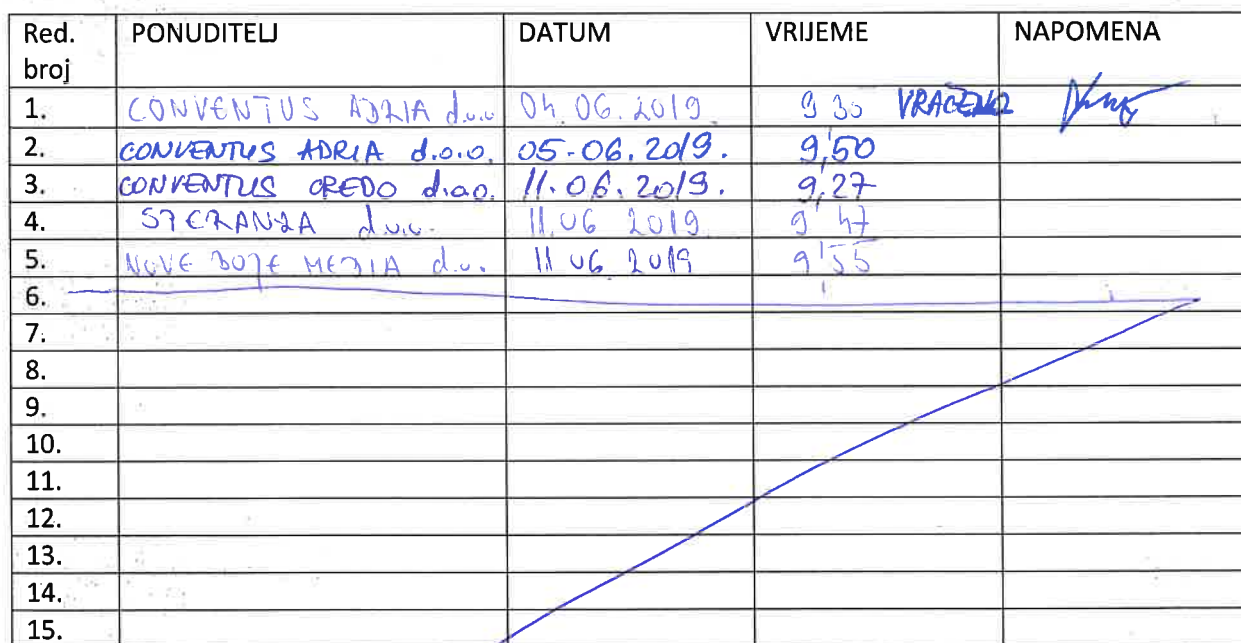 Red. broj PONUDITELJ DATUM VRIJEME NAPOMENA
1. CONVENTUS ADRIA d.o.o 04.06.2019 9 30 VRAĆENO
2. CONVENTUS ADRIA d.o.o. 05-06.2019. 9,50
3. CONVENTUS CREDO d.o.o. 11.06.2019. 9,27
4. SPERANZA d.o.o. 11.06 2019 9 47
5. NOVE BOJE MEDIA d.o. 11 06 2019 9'55
6.
7.
8.
9.
10.
11.
12.
13.
14.
15.